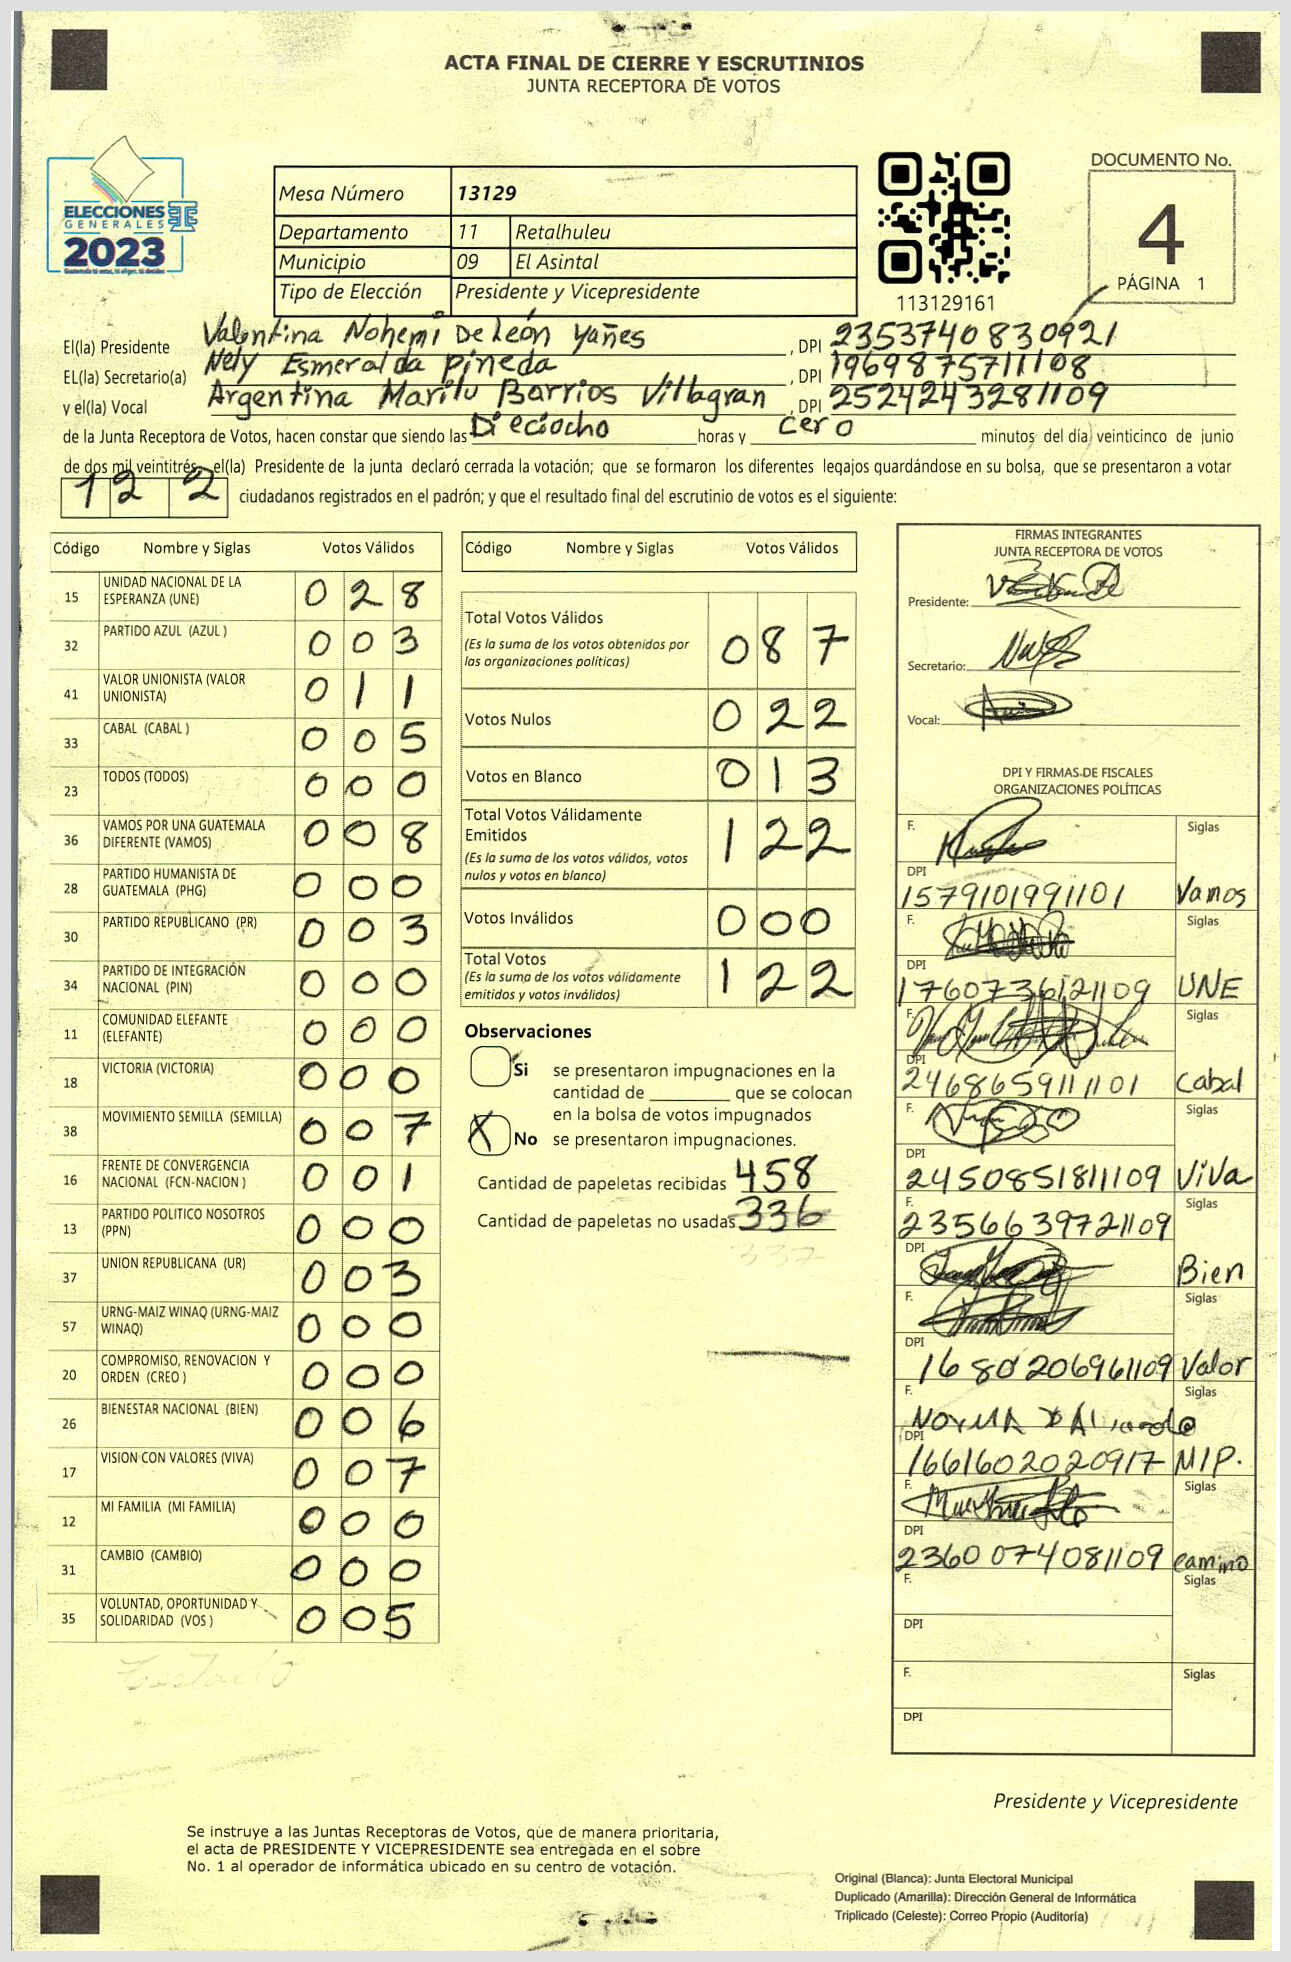 ACTA FINAL DE CIERRE Y ESCRUTINIOS
JUNTA RECEPTORA DE VOTOS
ELECCIONES
GENERALES
2023
Guatemala tú votas, tú eliges, tú decides
Mesa Número 13129
Departamento 11 Retalhuleu
Municipio 09 El Asintal
Tipo de Elección Presidente y Vicepresidente
113129161
DOCUMENTO No.
4
PÁGINA 1
El(la) Presidente Valentina Nohemi De León Yañes , DPI 2353740830921
EL(la) Secretario(a) Nely Esmeralda Pineda , DPI 1969875711108
y el(la) Vocal Argentina Marilu Barrios Villagran , DPI 2524243281109
de la Junta Receptora de Votos, hacen constar que siendo las Dieciocho horas y cero minutos del día veinticinco de junio
de dos mil veintitrés, el(la) Presidente de la junta declaró cerrada la votación; que se formaron los diferentes legajos quardándose en su bolsa, que se presentaron a votar
122 ciudadanos registrados en el padrón; y que el resultado final del escrutinio de votos es el siguiente:
Código Nombre y Siglas Votos Válidos
15 UNIDAD NACIONAL DE LA ESPERANZA (UNE) 028
32 PARTIDO AZUL (AZUL ) 003
41 VALOR UNIONISTA (VALOR UNIONISTA) 011
33 CABAL (CABAL ) 005
23 TODOS (TODOS) 000
36 VAMOS POR UNA GUATEMALA DIFERENTE (VAMOS) 008
28 PARTIDO HUMANISTA DE GUATEMALA (PHG) 000
30 PARTIDO REPUBLICANO (PR) 003
34 PARTIDO DE INTEGRACIÓN NACIONAL (PIN) 000
11 COMUNIDAD ELEFANTE (ELEFANTE) 000
18 VICTORIA (VICTORIA) 000
38 MOVIMIENTO SEMILLA (SEMILLA) 007
16 FRENTE DE CONVERGENCIA NACIONAL (FCN-NACION ) 001
13 PARTIDO POLITICO NOSOTROS (PPN) 000
37 UNION REPUBLICANA (UR) 003
57 URNG-MAIZ WINAQ (URNG-MAIZ WINAQ) 000
20 COMPROMISO, RENOVACION Y ORDEN (CREO ) 000
26 BIENESTAR NACIONAL (BIEN) 006
17 VISION CON VALORES (VIVA) 007
12 MI FAMILIA (MI FAMILIA) 000
31 CAMBIO (CAMBIO) 000
35 VOLUNTAD, OPORTUNIDAD Y SOLIDARIDAD (VOS ) 005
Código Nombre y Siglas Votos Válidos
Total Votos Válidos 087
(Es la suma de los votos obtenidos por
las organizaciones políticas)
Votos Nulos 022
Votos en Blanco 013
Total Votos Válidamente
Emitidos 122
(Es la suma de los votos válidos, votos
nulos y votos en blanco)
Votos Inválidos 000
Total Votos 122
(Es la suma de los votos válidamente
emitidos y votos inválidos)
Observaciones
Si se presentaron impugnaciones en la
cantidad de ________ que se colocan
en la bolsa de votos impugnados
X No se presentaron impugnaciones.
Cantidad de papeletas recibidas 458
Cantidad de papeletas no usadas 336
337
FIRMAS INTEGRANTES
JUNTA RECEPTORA DE VOTOS
Presidente:
Secretario:
Vocal:
DPI Y FIRMAS DE FISCALES
ORGANIZACIONES POLÍTICAS
F. Siglas
DPI
1579101991101 Vamos
F. Siglas
DPI
1760736121109 UNE
F. Siglas
DPI
2468659111101 Cabal
F. Siglas
DPI
2450851811109 ViVa
F. Siglas
2356639721109
DPI Bien
F. Siglas
DPI
1680206961109 Valor
F. Siglas
DPI
1661602020917 MIP.
F. Siglas
DPI
2360074081109 camino
F. Siglas
DPI
F. Siglas
DPI
Presidente y Vicepresidente
Se instruye a las Juntas Receptoras de Votos, que de manera prioritaria,
el acta de PRESIDENTE Y VICEPRESIDENTE sea entregada en el sobre
No. 1 al operador de informática ubicado en su centro de votación.
Original (Blanca): Junta Electoral Municipal
Duplicado (Amarilla): Dirección General de Informática
Triplicado (Celeste): Correo Propio (Auditoría)